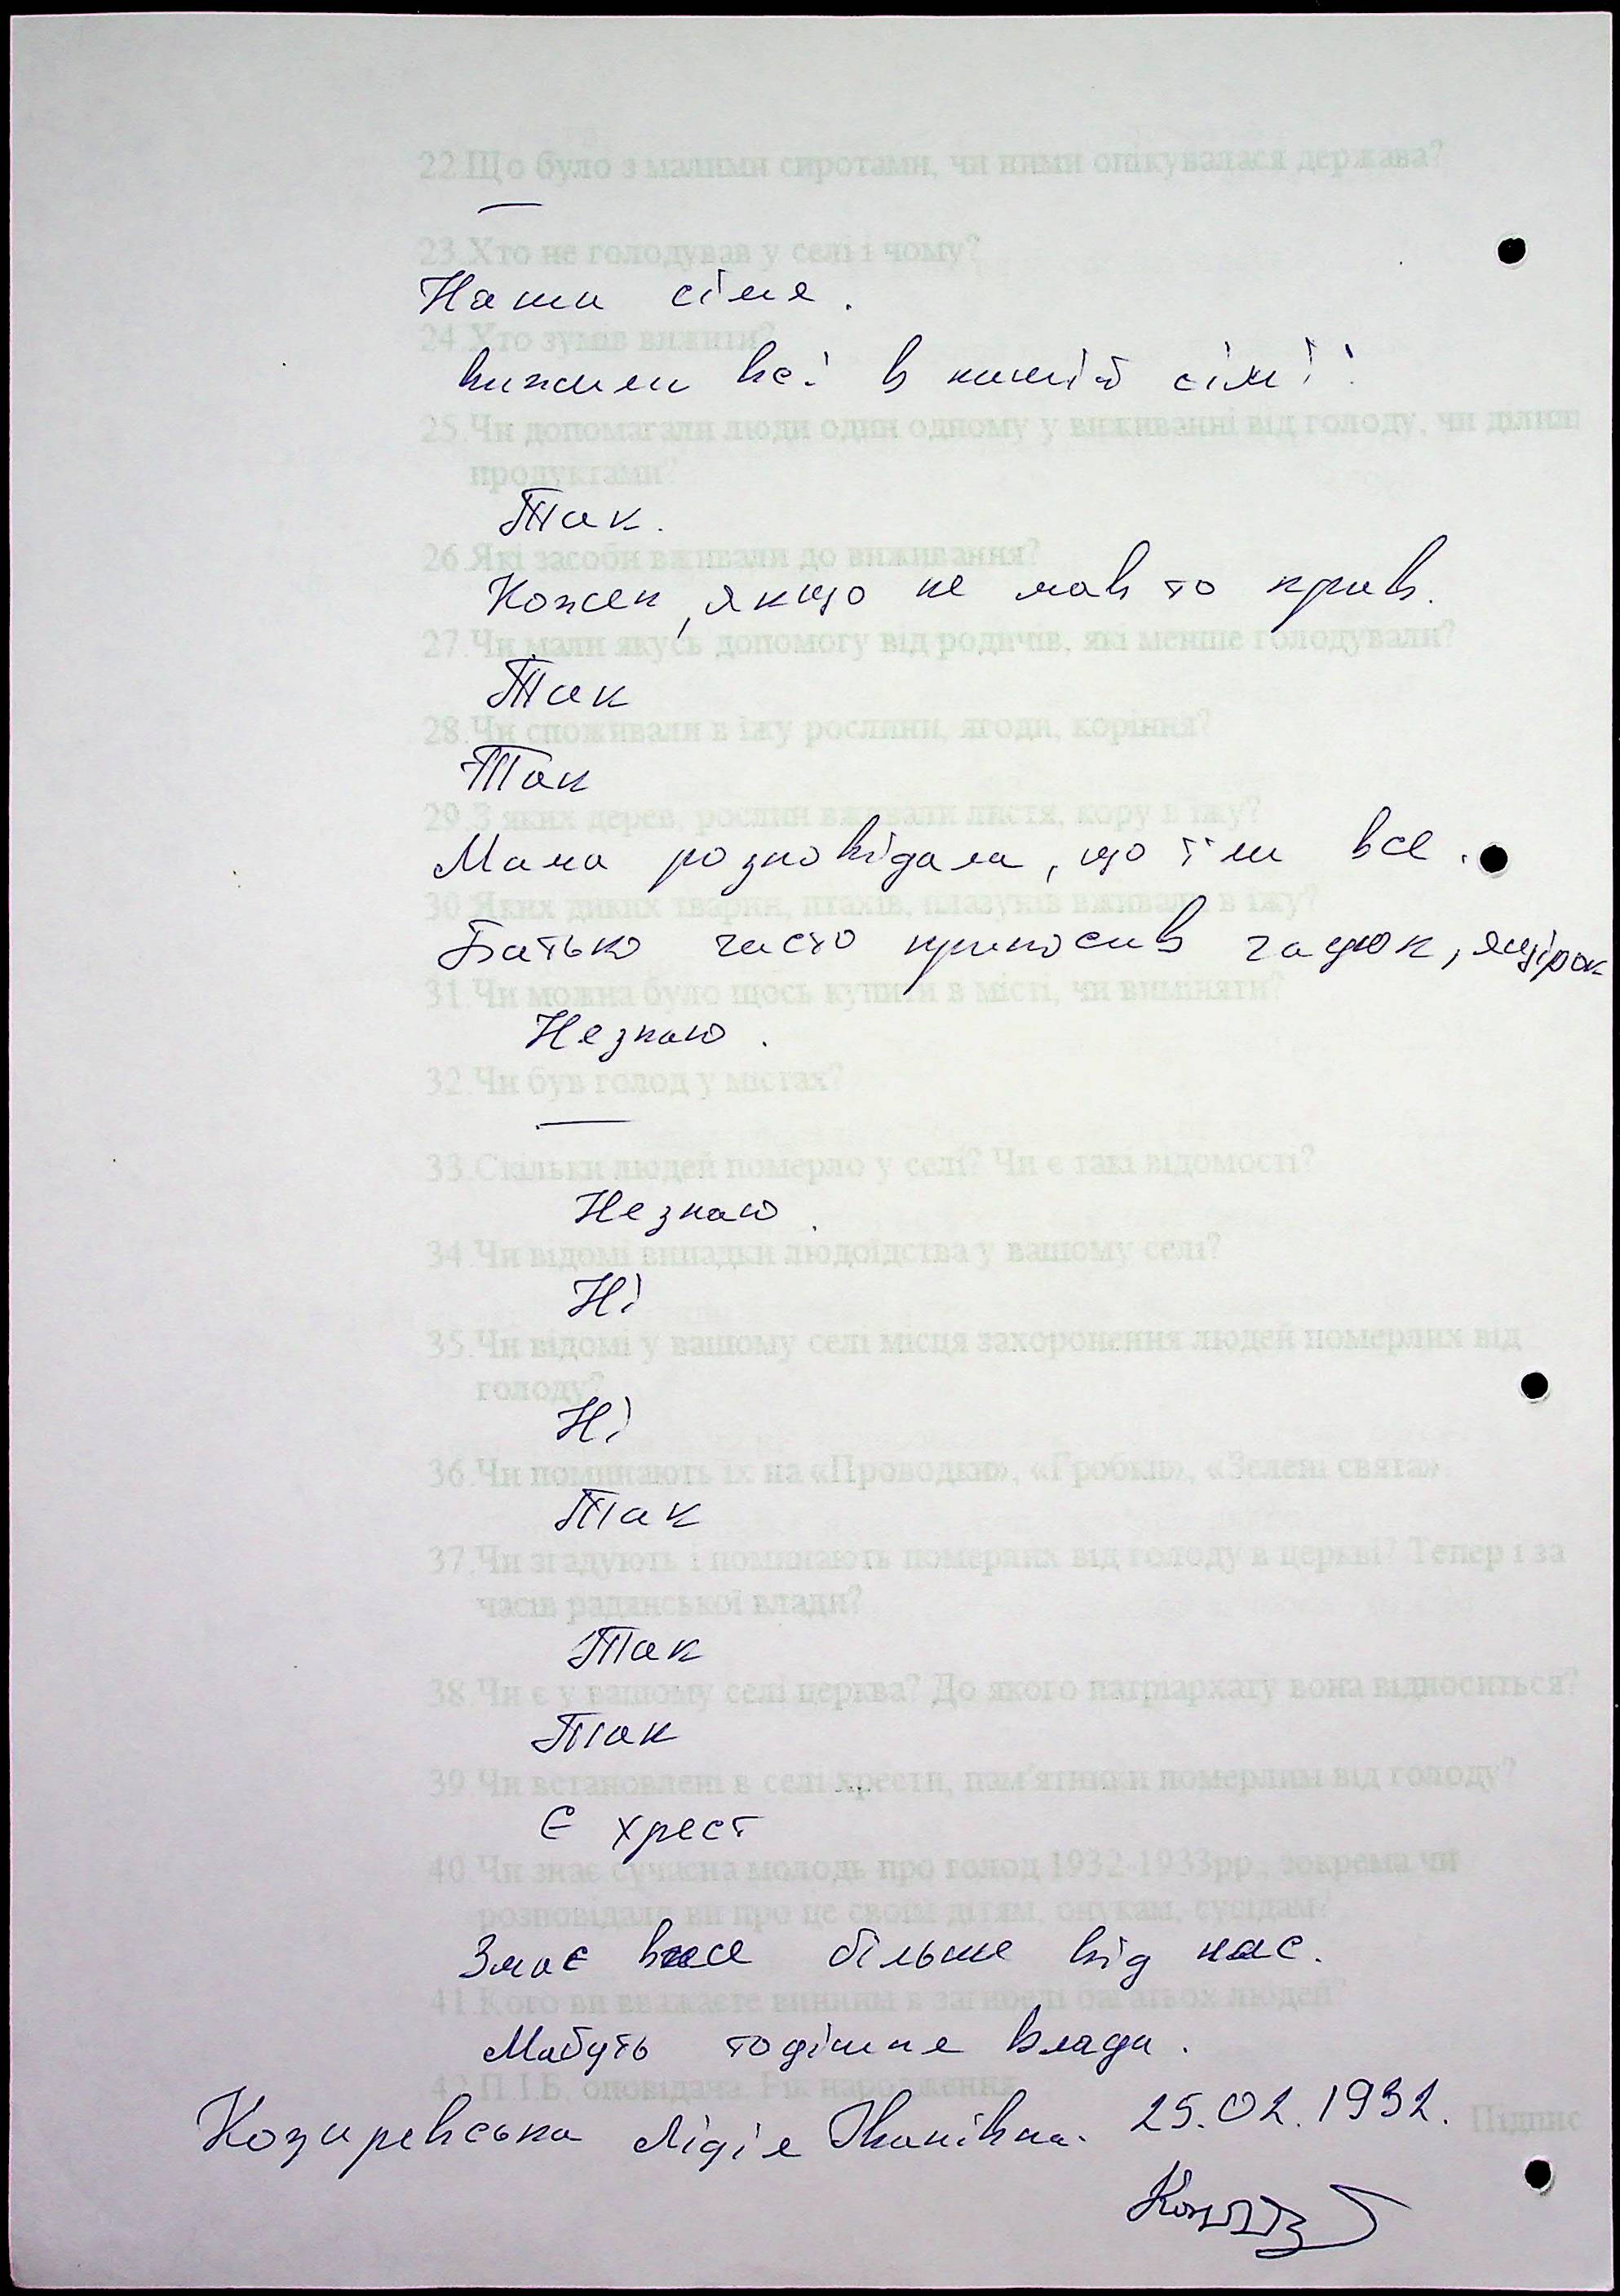 22.Що було з малими сиротами, чи ними опікувалася держава?
—
23.Хто не голодував у селі і чому?
Наша сімя.
24.Хто зумів вижити?
вижили всі в нашій сімї
25.Чи допомагали люди один одному у виживанні від голоду, чи ділили
продуктами?
Так.
26.Які засоби вживали до виживання?
Кожен, якщо не мав то крав.
27.Чи мали якусь допомогу від родичів, які менше голодували?
Так
28.Чи споживали в їжу рослини, ягоди, коріння?
Так
29.З яких дерев, рослин вживали листя, кору в їжу?
Мама розповідала, що їли все.
30.Яких диких тварин, птахів, плазунів вживали в їжу?
Батько часто приносив гадюк, ящірок
31.Чи можна було щось купити в місті, чи виміняти?
Незнаю.
32.Чи був голод у містах?
—
33.Скільки людей померло у селі? Чи є такі відомості?
Незнаю.
34.Чи відомі випадки людоїдства у вашому селі?
Ні
35.Чи відомі у вашому селі місця захоронення людей померлих від
голоду?
Ні
36.Чи поминають їх на «Проводки», «Гробки», «Зелені свята».
Так
37.Чи згадують і поминають померлих від голоду в церкві? Тепер і за
часів радянської влади?
Так
38.Чи є у вашому селі церква? До якого патріархату вона відноситься?
Так
39.Чи встановлені в селі хрести, пам'ятники померлим від голоду?
Є хрест
40.Чи знає сучасна молодь про голод 1932-1933рр., зокрема чи
розповідали ви про це своїм дітям, онукам, сусідам?
Знає більше від нас.
41.Кого ви вважаєте винним в загибелі багатьох людей?
Мабуть тодішня влада.
42.П.І.Б. оповідача. Рік народження
Козиревська Лідія Іванівна. 25.02.1932.
Підпис